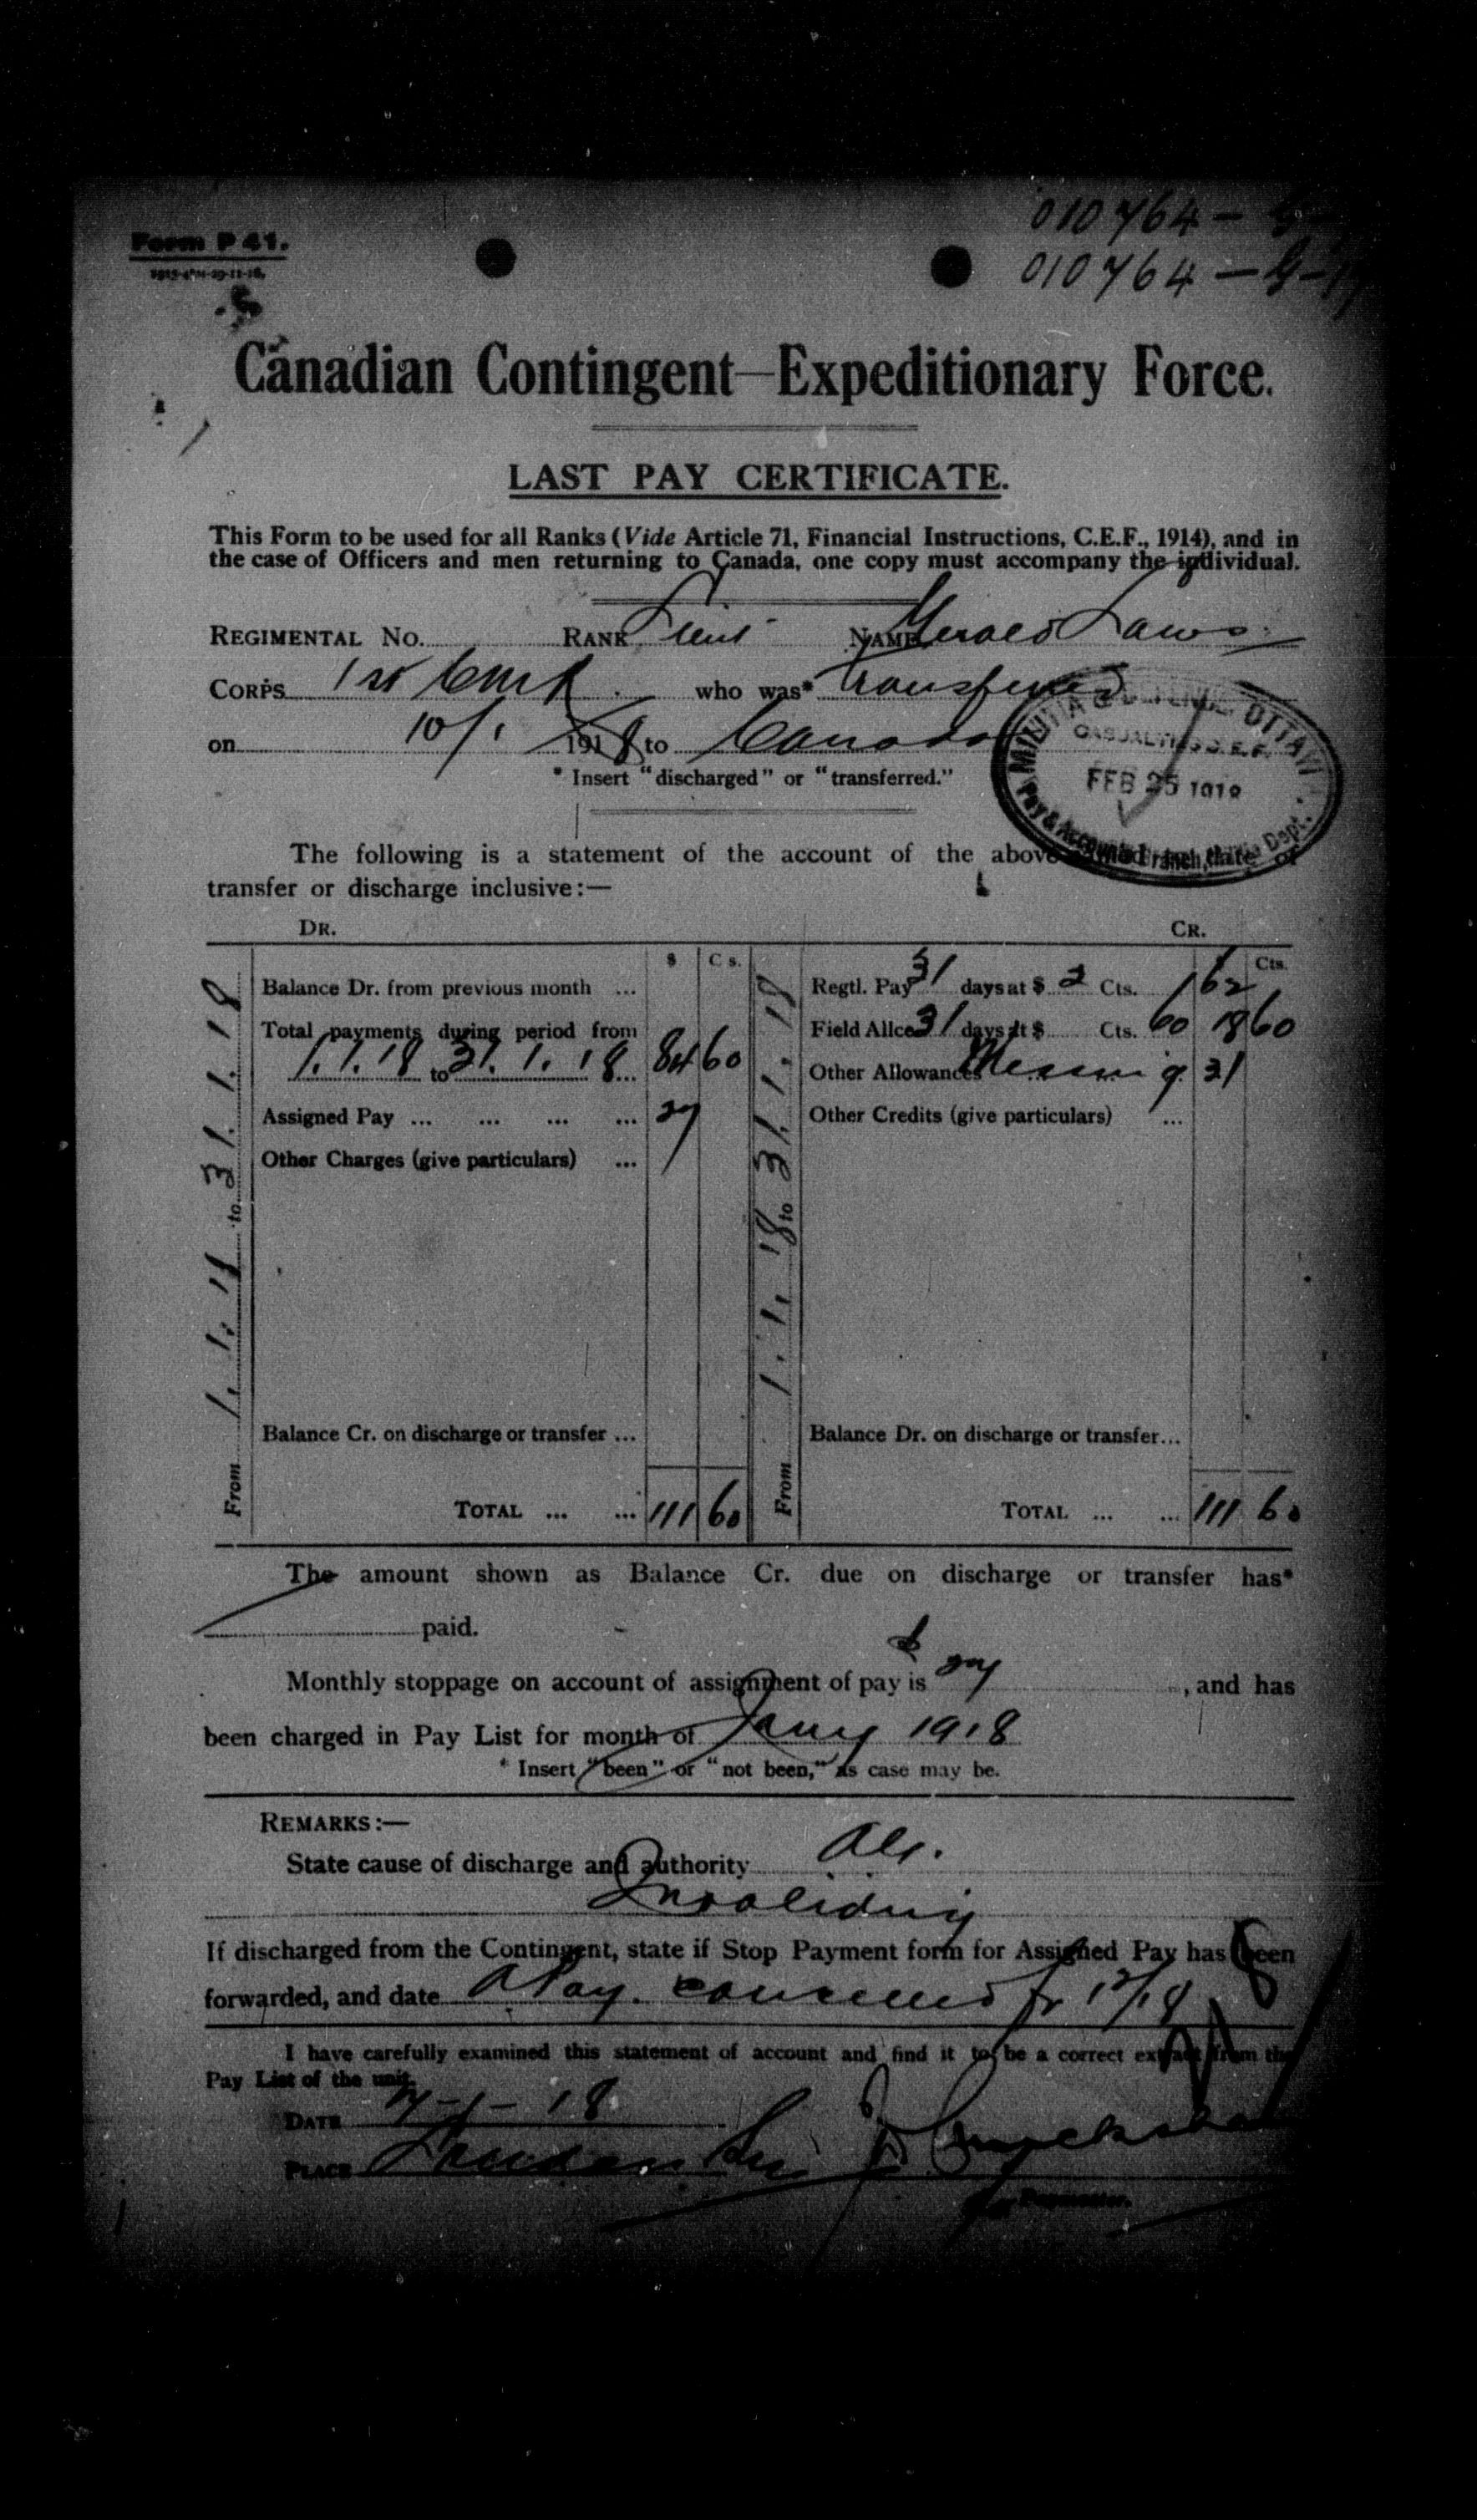 010764 - G-
010764 - G-
Form P 41.
Canadian Contingent—Expeditionary Force.
LAST PAY CERTIFICATE.
This Form to be used for all Ranks (Vide Article 71, Financial Instructions, C.E.F., 1914), and in
the case of Officers and men returning to Canada, one copy must accompany the individual.
REGIMENTAL No. RANK Lieut NAME Gerald Laws
CORPS 1st who was* transferred
on 10/1 1918 to Canada
* Insert "discharged" or "transferred."
MILITIA & DEFENCE, OTTAWA
CASUALTIES C.E.F.
FEB 25 1918
Pay & Accounts Branch, Dept.
The following is a statement of the account of the above date of
transfer or discharge inclusive:—
DR. CR.
$ Cs. $ Cts.
Balance Dr. from previous month ... Regtl. Pay 31 days at $ 2 Cts. 62
Total payments during period from Field Allce 31 days at $ Cts. 60 18 60
1.1.18 to 31.1.18 ... 84 60 Other Allowances Messing 31
Assigned Pay ... ... ... ... 27 Other Credits (give particulars) ...
Other Charges (give particulars) ...
From 1.1.18 to 31.1.18 From 1.1.18 to 31.1.18
Balance Cr. on discharge or transfer ... Balance Dr. on discharge or transfer...
TOTAL ... ... 111 60 TOTAL ... ... 111 60
The amount shown as Balance Cr. due on discharge or transfer has*
paid.
Monthly stoppage on account of assignment of pay is $ 27, and has
been charged in Pay List for month of Jany 1918
* Insert "been" or "not been," as case may be.
REMARKS:—
State cause of discharge and authority
Invaliding
If discharged from the Contingent, state if Stop Payment form for Assigned Pay has been
forwarded, and date A Pay. cancelled fr 1/2/18
I have carefully examined this statement of account and find it to be a correct extract from the
Pay List of the unit.
DATE -1-18
PLACE London
Paymaster.